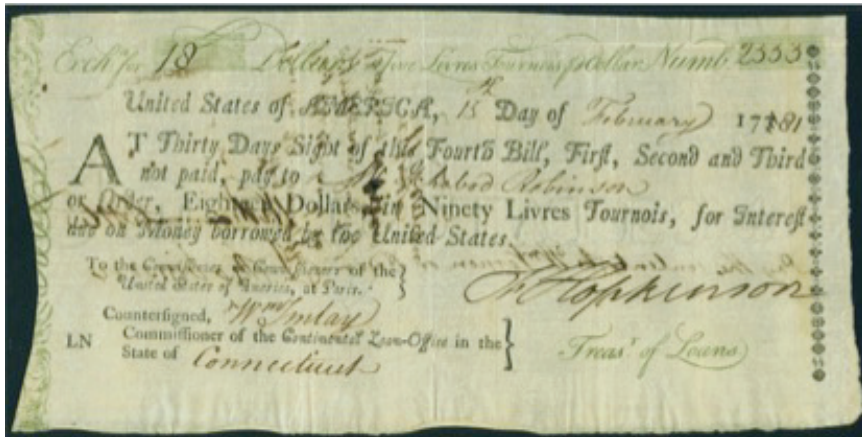 Exch. for 18 Dollars at five Livres Tournois pr Dollar Numb. 2353
United States of AMERICA, 15 Day of February 1781
AT Thirty Days Sight of this Fourth Bill, First, Second and Third
not paid, pay to Ichabod Robinson
or Order, Eighteen Dollars, in Ninety Livres Tournois, for Interest
due on Money borrowed by the United States.
To the Commissioner or Commissioners of the
United States of America, at Paris.
Fs Hopkinson
Countersigned, Wm Imlay
LN Commissioner of the Continental Loan-Office in the
State of Connecticut
Treasr of Loans